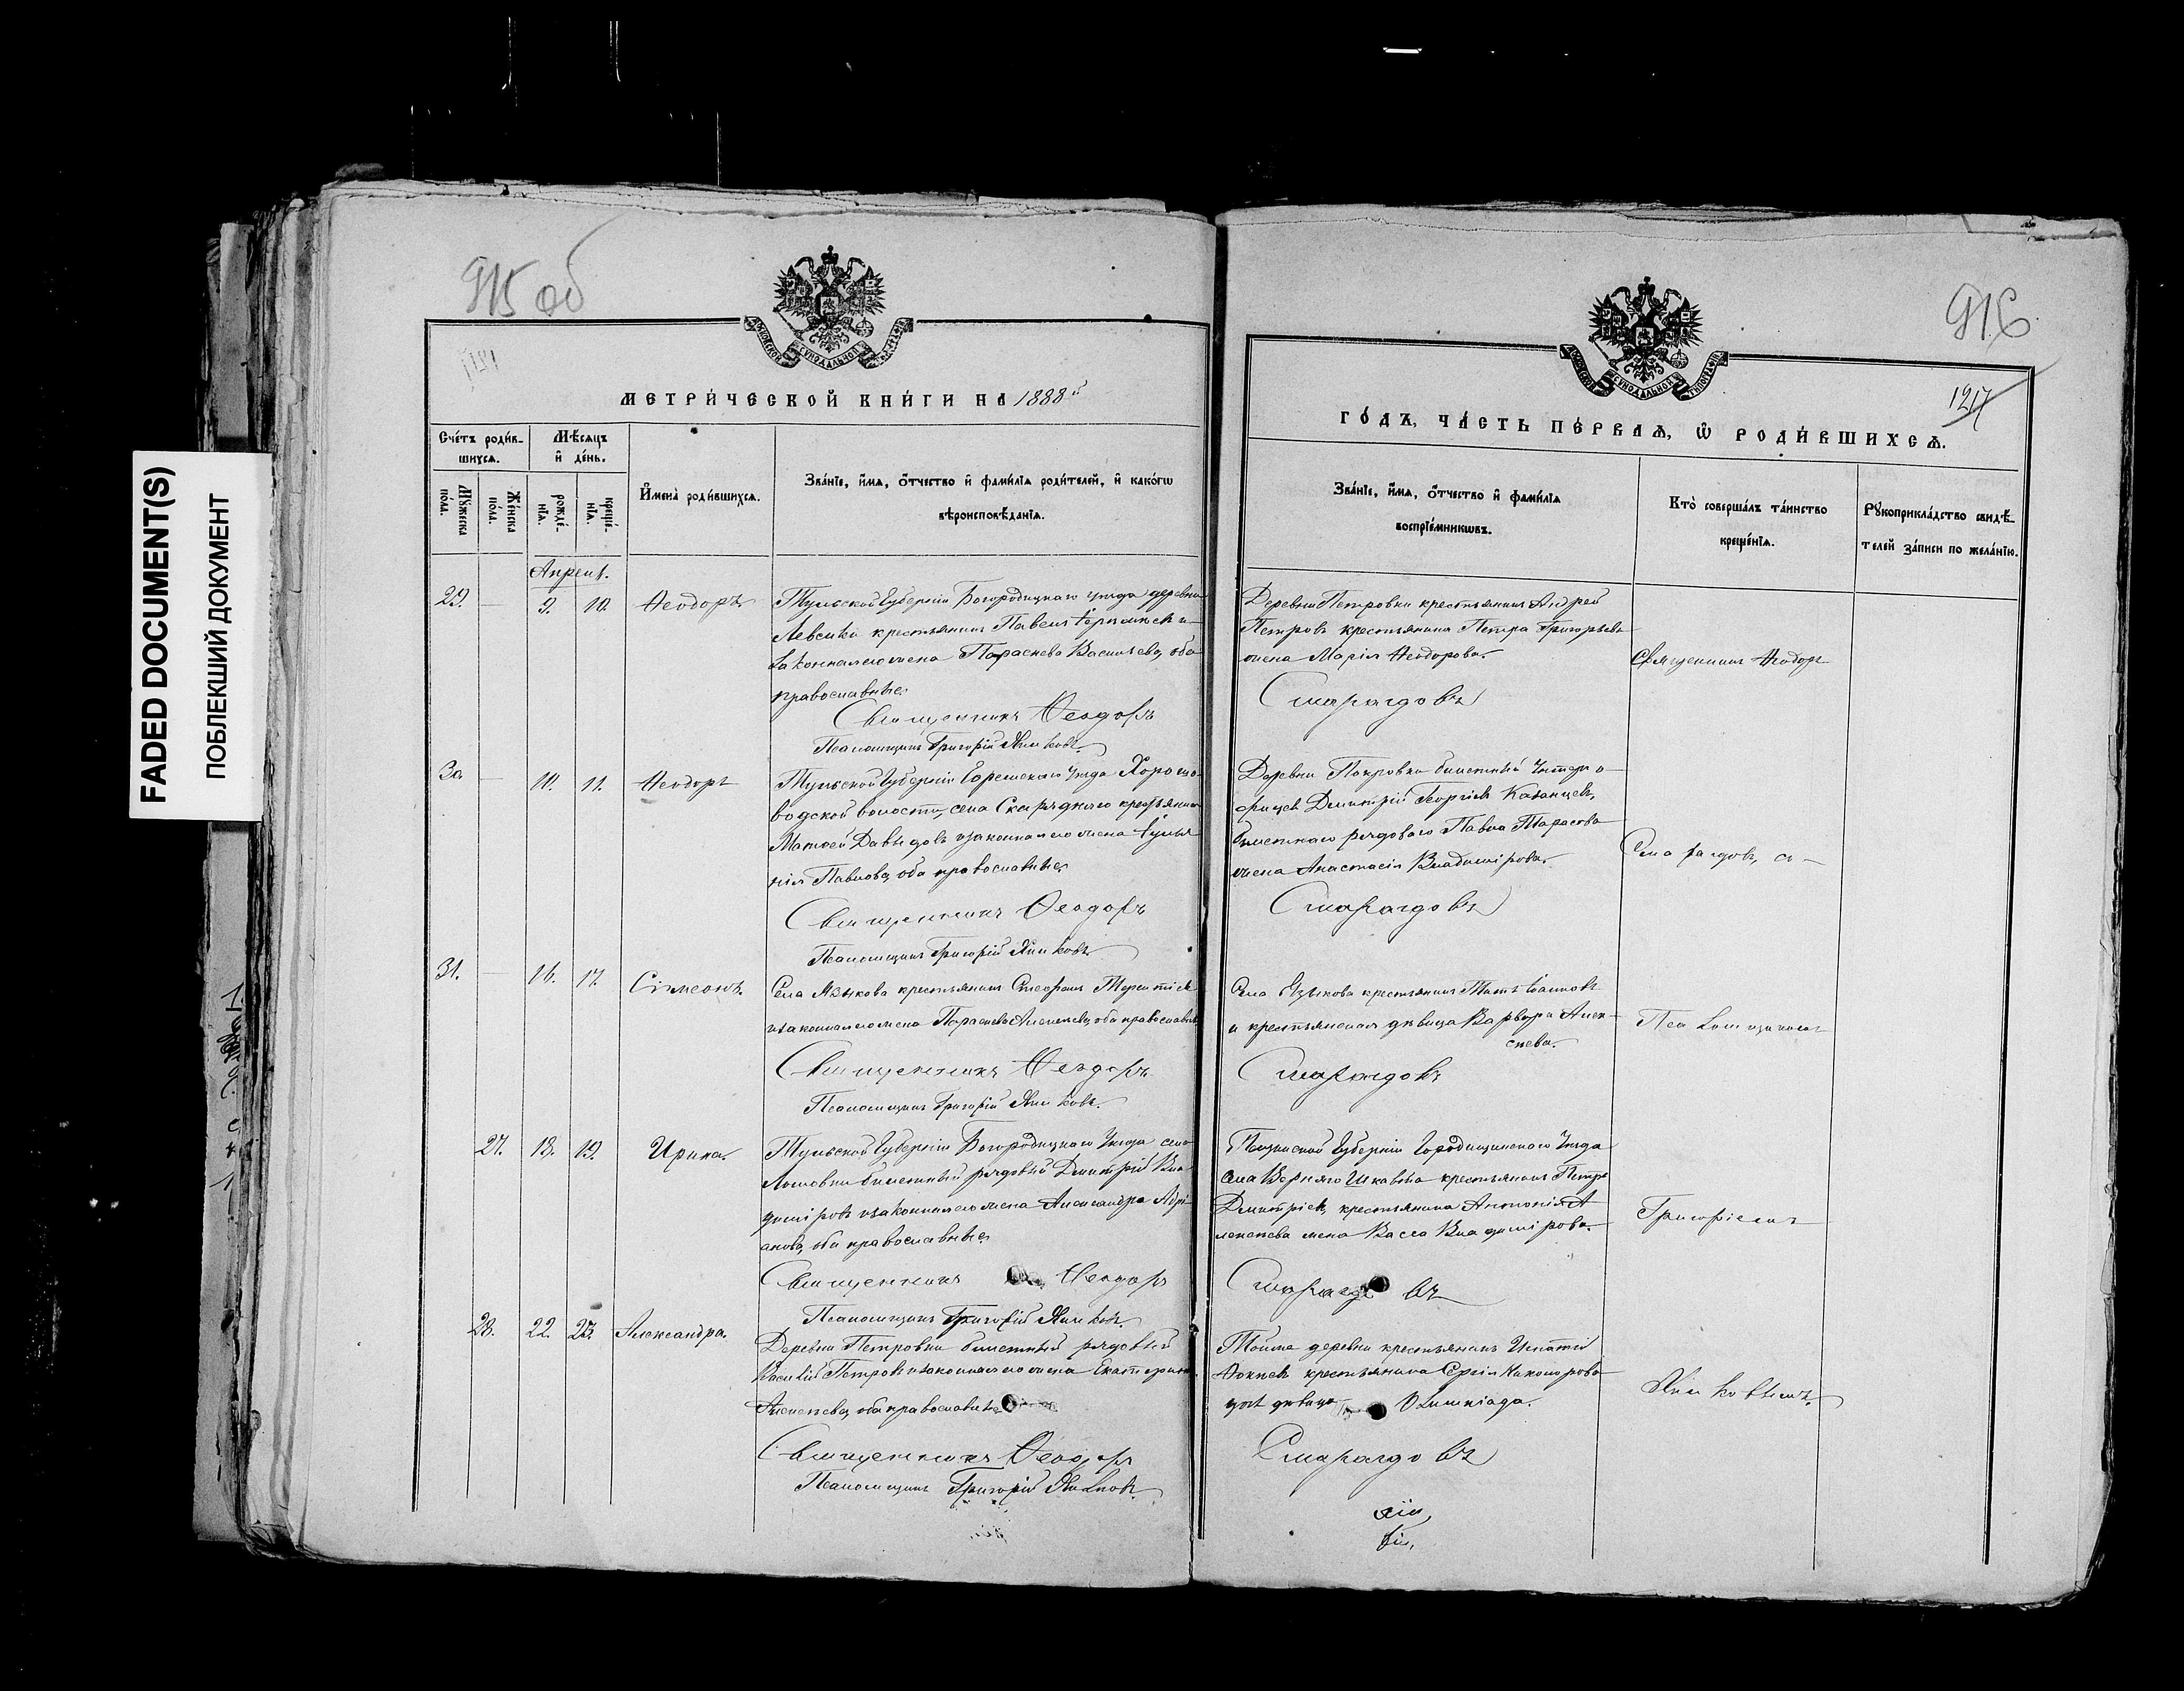 FADED DOCUMENT(S)
ПОБЛЕКШИЙ ДОКУМЕНТ
915 об
МЕТРИ́ЧЕСКОЙ КНИ́ГИ НА 1888й
Сче́тъ роди́в-
шихсѧ.
Мѣ́сѧцъ
и҆ де́нь.
Мꙋ́жеска по́ла.
Же́нска по́ла.
рожде́-нїѧ.
креще́-нїѧ.
И҆мена̀ роди́вшихсѧ.
Зва́нїе, и҆́мѧ, ѻ҆́тчество и҆ фами́лїѧ роди́телей, и҆ како́гѡ
вѣроисповѣ́данїѧ.
Апрель.
29. 9. 10. Ѳеодоръ
Тульской Губерніи Богородицкаго уезда деревни
крестьянинъ Павелъ
законная его жена Параскева Васильева, оба
православные
Священникъ Ѳеодоръ
Псаломщикъ Григорій
30 10. 11. Ѳеодоръ
Тульской Губерніи Уезда
волости, села крестьянинъ
Матѳей Давыдовъ и законная его жена
Павлова, оба православные
Священникъ Ѳеодоръ
Псаломщикъ Григорій
31. 16. 17. Сѵмеонъ.
Села Языкова крестьянинъ Стефанъ Терентіевъ
и законная его жена Параскева Алексеева, оба православные
Священникъ Ѳеодоръ
Псаломщикъ Григорій
27. 18. 19. Ирина.
Тульской Губерніи Богородицкаго Уезда села
билетный рядовый Дмитрій Вла-
диміровъ и законная его жена Александра Адрі-
анова, оба православные.
Священникъ Ѳеодоръ
Псаломщикъ Григорій
28. 22. Александра.
Деревни Петровки билетный рядовый
Василій Петровъ и законная его жена Екатерина
Алексеева, оба православные
Священникъ Ѳеодоръ
Псаломщикъ Григорій
916
1217
ГО́ДЪ, ЧА́СТЬ ПЕ́РВАѦ, Ѡ҆ РОДИ́ВШИХСѦ.
Зва́нїе, и҆́мѧ, ѻ҆́тчество и҆ фами́лїѧ
воспрїе́мникѡвъ.
Кто̀ соверша́лъ та́инство
креще́нїѧ.
Рꙋкоприкла́дство свидѣ́-
телей за́писи по жела́нїю.
Деревни Петровки крестьянинъ Андрей
Петровъ крестьянина Петра Григорьева
жена Марія Ѳеодорова.
Священникъ Ѳеодоръ
Смарагдовъ
Деревни Покровки билетный Унтеръ о-
фицеръ Димитрій Георгіевъ Казанцевъ,
билетнаго рядоваго Павла Тарасова
жена Анастасія Владимірова.
Смарагдовъ, съ
Смарагдовъ
Села Языкова крестьянинъ Іоанновъ
и крестьянская девица Варвара Алек-
сеева.
Псаломщикомъ
Смарагдовъ
Губерніи Городищенскаго Уезда
села крестьянинъ Петръ
Дмитріевъ, крестьянина Антонія А-
лексеева жена Васса Владимірова.
Григоріемъ
Смарагдовъ
Тойже деревни крестьянинъ Игнатій
крестьянина Сергія Никанорова
дочь девица Олимпіада.
Смарагдовъ